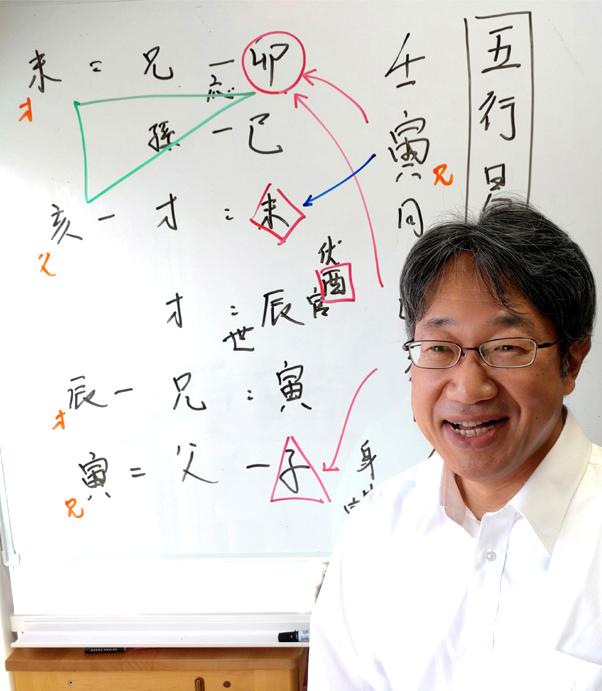 五行易
壬寅
兄
同
未 = 兄 一 卯
才 応
孫 一 巳
亥 一 才 : 未
父
伏
酉
才 : 辰 官
世
辰 一 兄 : 寅
才
寅 = 父 一 子
兄
身